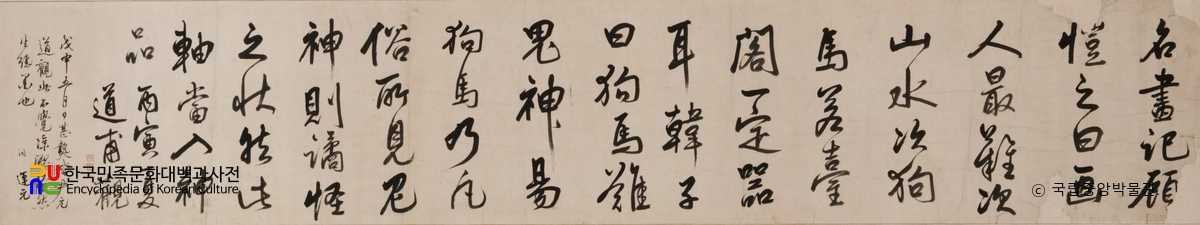 名畫記顧
愷之曰画
人最難次
山水次狗
馬若臺
閣一定器
耳韓子
曰狗馬難
鬼神易
狗馬乃凡
俗所見鬼
神則譎怪
之狀然此
軸當入神
品丙寅夏
道甫觀
戊申五月日甚熱
道觀此不覺凉
生
한국민족문화대백과사전
Encyclopedia of Korean Culture
© 국립중앙박물관